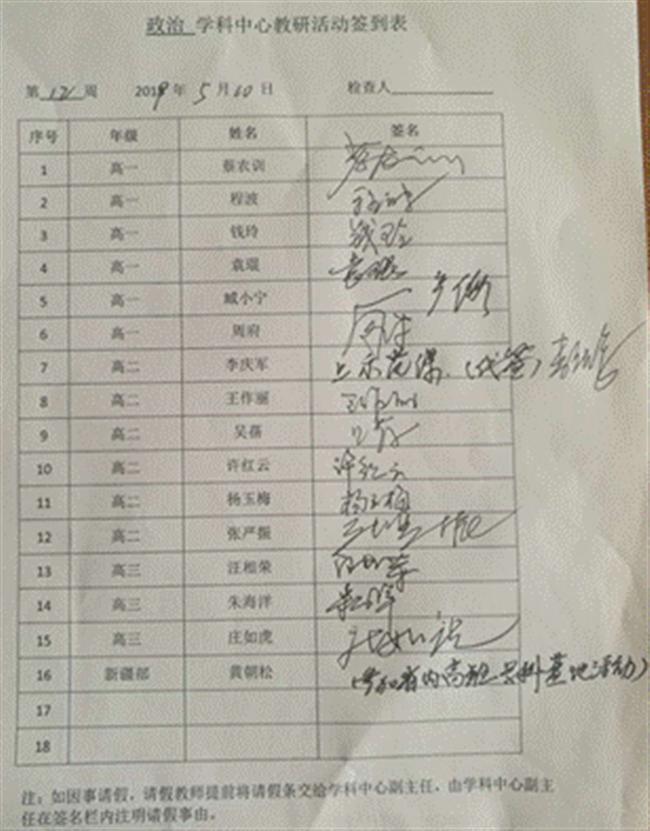 政治 学科中心教研活动签到表
第 12 周 2019年 5月10日 检查人
序号 年级 姓名 签名
1 高一 蔡农训
2 高一 程波 程波
3 高一 钱玲 钱玲
4 高一 袁琨 袁琨
5 高一 臧小宁
6 高一 周府 周府
7 高二 李庆军 上示范课.(代签)
8 高二 王作丽 王作丽
9 高二 吴蓓 吴蓓
10 高二 许红云 许红云
11 高二 杨玉梅 杨玉梅
12 高二 张严振
13 高三 汪相荣 汪相荣
14 高三 朱海洋 朱海洋
15 高三 庄如虎
16 新疆部 黄朝松 (参加省内高班学科基地活动)
17
18
注：如因事请假，请假教师提前将请假条交给学科中心副主任，由学科中心副主
任在签名栏内注明请假事由。